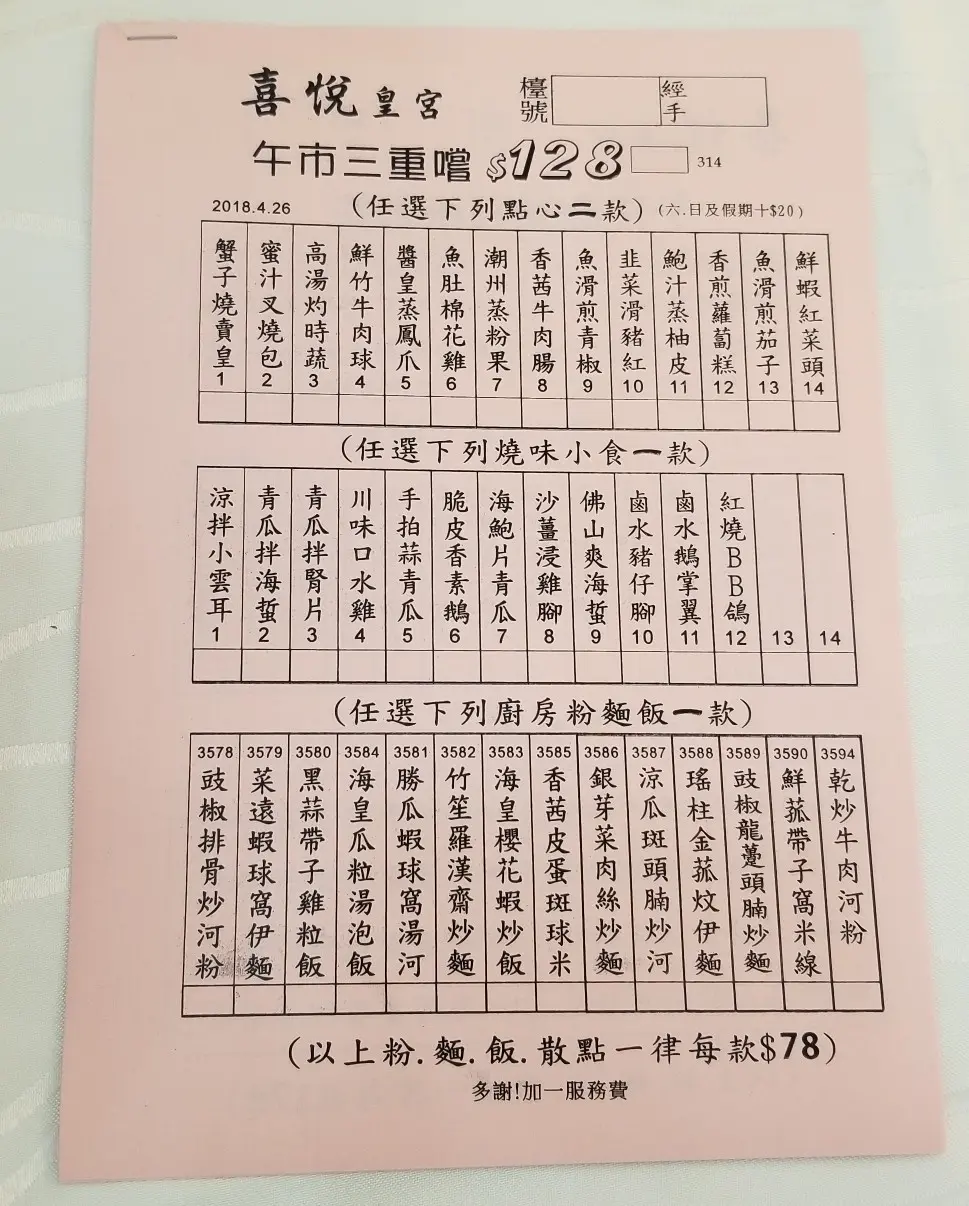 喜悅皇宮
檯號
經手
午市三重嚐 $128
314
2018.4.26
(任選下列點心二款)
(六.日及假期十$20)
蟹子燒賣皇 1
蜜汁叉燒包 2
高湯灼時蔬 3
鮮竹牛肉球 4
醬皇蒸鳳爪 5
魚肚棉花雞 6
潮州蒸粉果 7
香茜牛肉腸 8
魚滑煎青椒 9
韭菜滑豬紅 10
鮑汁蒸柚皮 11
香煎蘿蔔糕 12
魚滑煎茄子 13
鮮蝦紅菜頭 14
(任選下列燒味小食一款)
涼拌小雲耳 1
青瓜拌海蜇 2
青瓜拌腎片 3
川味口水雞 4
手拍蒜青瓜 5
脆皮香素鵝 6
海鮑片青瓜 7
沙薑浸雞腳 8
佛山爽海蜇 9
鹵水豬仔腳 10
鹵水鵝掌翼 11
紅燒BB鴿 12
13
14
(任選下列廚房粉麵飯一款)
3578 豉椒排骨炒河粉
3579 菜遠蝦球窩伊麵
3580 黑蒜帶子雞粒飯
3584 海皇瓜粒湯泡飯
3581 勝瓜蝦球窩湯河
3582 竹笙羅漢齋炒麵
3583 海皇櫻花蝦炒飯
3585 香茜皮蛋斑球米
3586 銀芽菜肉絲炒麵
3587 涼瓜斑頭腩炒河
3588 瑤柱金菰炆伊麵
3589 豉椒龍躉頭腩炒麵
3590 鮮菰帶子窩米線
3594 乾炒牛肉河粉
(以上粉.麵.飯.散點一律每款$78)
多謝!加一服務費